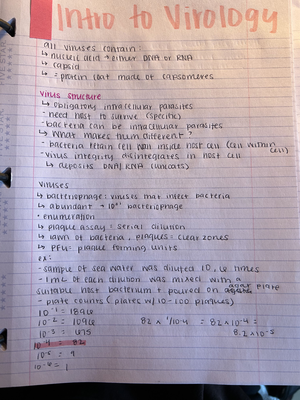 Intro to Virology
all viruses contain
↳ nucleic acid → either DNA or RNA
↳ capsid
↳ = protein coat made of capsomeres
Virus Structure
↳ obligatory intracellular parasites
- need host to survive (specific)
- bacteria can be intracellular parasites
↳ What makes them different?
- bacteria retain cell wall inside host cell (cell within cell)
- virus integrity disintegrates in host cell
↳ deposits DNA/RNA (uncoats)
Viruses
↳ bacteriophage: viruses that infect bacteria
↳ abundant → bacteriophage
• enumeration
↳ plaque assay: serial dilution
↳ lawn of bacteria, plaques = clear zones
↳ PFU= plaque forming units
ex:
- sample of sea water was diluted 10, 6 times
- 1ml of each dilution was mixed with a
suitable host bacterium + poured on agar plate
- plate counts (plates w/ 10-100 plaques)
10⁻¹ = 1896
10⁻² = 1096
10⁻³ = 675
10⁻⁴ = 82
82 x 1/10-4 = 82 x 10⁻⁴ =
8.2 x 10⁻⁵
10⁻⁵ = 9
10⁻⁶ = 1